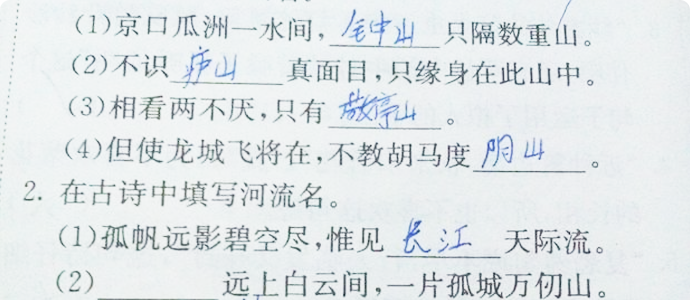 (1)京口瓜洲一水间,钟山只隔数重山。
(2)不识庐山真面目,只缘身在此山中。
(3)相看两不厌,只有敬亭山。
(4)但使龙城飞将在,不教胡马度阴山。
2. 在古诗中填写河流名。
(1)孤帆远影碧空尽,惟见长江天际流。
(2)________远上白云间,一片孤城万仞山。